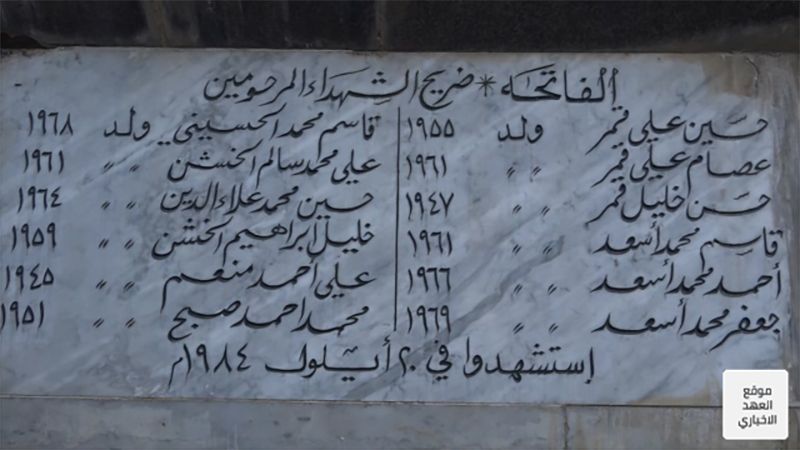 ألفاتحه * ضريح الشهداء المرحومين
حسين علي قمر ولد ١٩٥٥
عصام علي قمر " " ١٩٦١
حسن خليل قمر " " ١٩٤٧
قاسم محمد أسعد " " ١٩٦١
أحمد محمد أسعد " " ١٩٦٦
جعفر محمد أسعد " " ١٩٦٩
قاسم محمد الحسيني ولد ١٩٦٨
علي محمد سالم الخشن " " ١٩٦١
حسين محمد علاء الدين " " ١٩٦٤
خليل ابراهيم الخشن " " ١٩٥٩
علي احمد منعم " " ١٩٤٥
محمد احمد صبح " " ١٩٥١
إستشهدوا في ٢٠ أيلول ١٩٨٤م
موقع
العهد
الاخباري